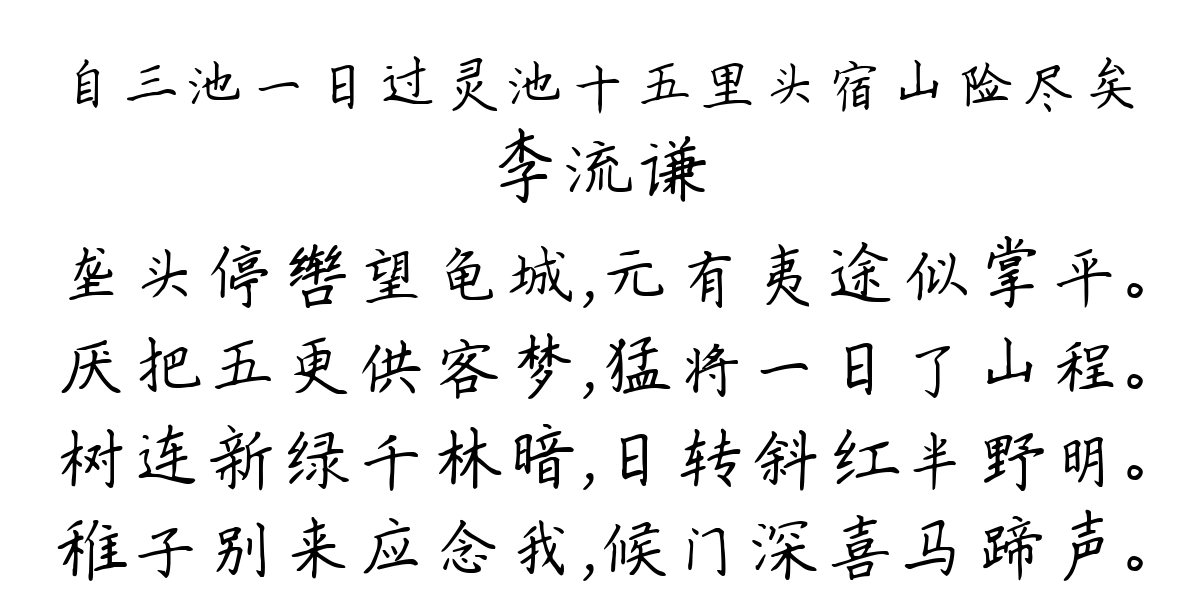 自三池一日过灵池十五里头宿山险尽矣
李流谦
垄头停辔望龟城,元有夷途似掌平。
厌把五更供客梦,猛将一日了山程。
树连新绿千林暗,日转斜红半野明。
稚子别来应念我,候门深喜马蹄声。